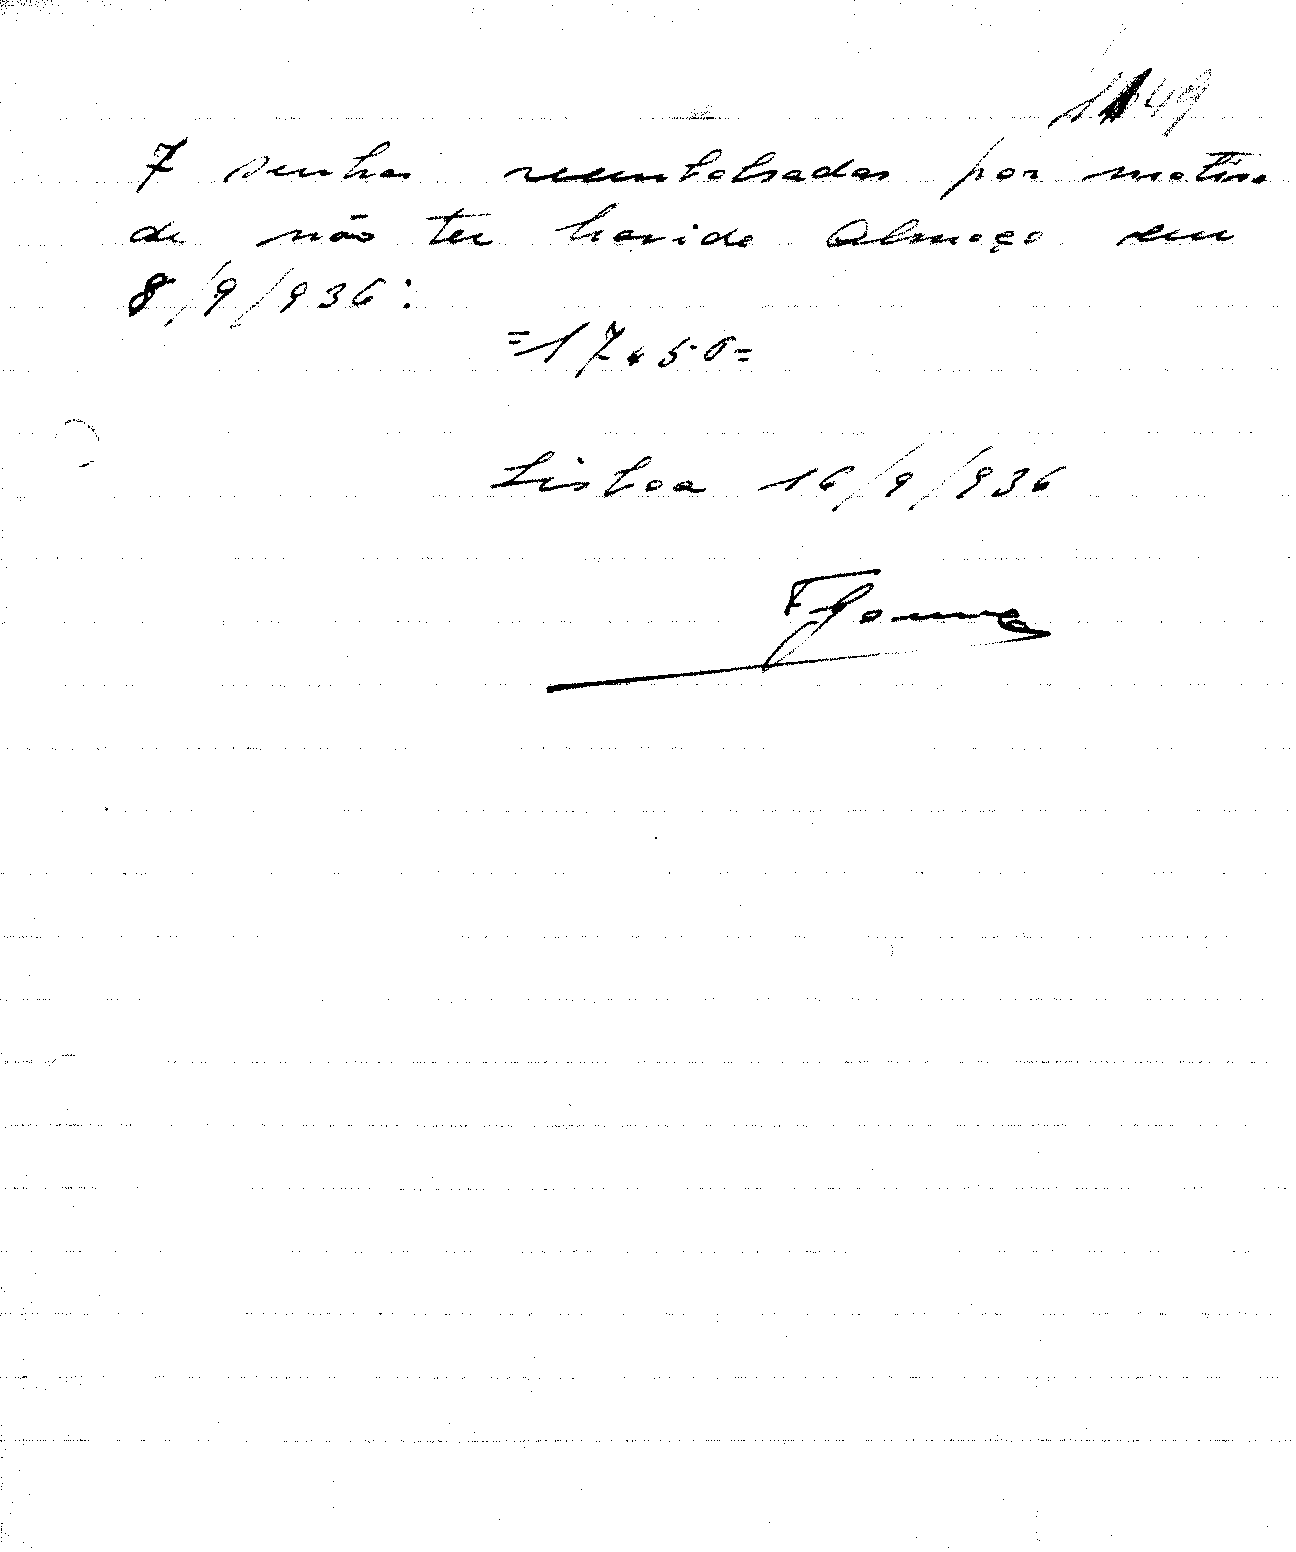 7 senhas reembolsadas por motivo
de não ter havido Almoço em
8/9/936:
=17.50=
Lisboa 16/9/936